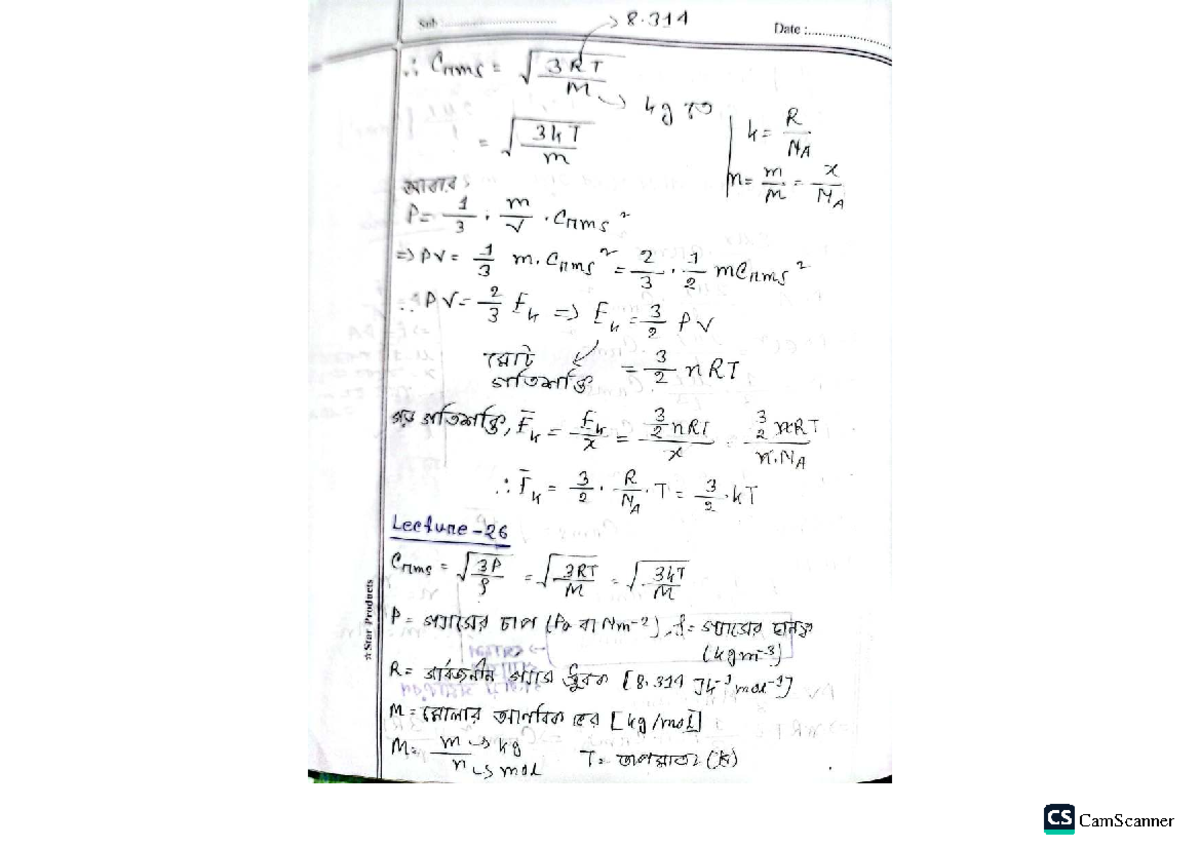 Sub :
→ 8.314
Date :
∴ Crms = √(3RT/M) → kg তে
= √(3kT/m)
k = R/NA
n = m/M = x/NA
আবার,
P = 1/3 · m/V · Crms²
⇒ PV = 1/3 m. Crms² = 2/3 · 1/2 mCrms²
∴ PV = 2/3 Ek ⇒ Ek = 3/2 PV
মোট গতিশক্তি
= 3/2 nRT
গড় গতিশক্তি, Ēk = Ek/x = 3/2 nRT/x = 3/2 nRT/n.NA
∴ Ēk = 3/2 · R/NA · T = 3/2 · kT
Lecture - 26
Crms = √(3P/ρ) = √(3RT/M) = √(3kT/M)
P = গ্যাসের চাপ (Pa বা Nm-2), ρ = গ্যাসের ঘনত্ব
(kgm-3)
R = সার্বজনীন গ্যাস ধ্রুবক [8.314 Jk-1mol-1]
M = মোলার আণবিক ভর [kg/mol]
M = m/n → kg → mol T = তাপমাত্রা (K)
☆Star Products
CS CamScanner